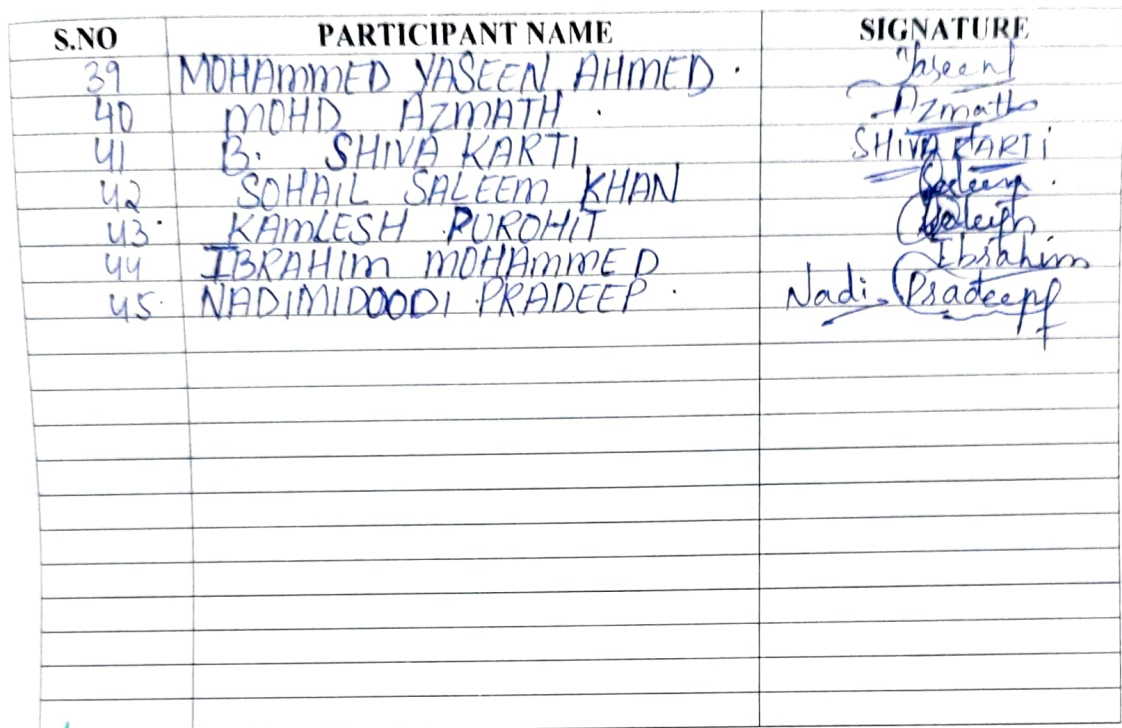 S.NO PARTICIPANT NAME SIGNATURE
39 MOHAMMED YASEEN AHMED . Yaseen
40 MOHD AZMATH . Azmath
41 B. SHIVA KARTI SHIVA KARTI
42 SOHAIL SALEEM KHAN Saleem .
43. KAMLESH PUROHIT
44 IBRAHIM MOHAMMED Ibrahim
45. NADIMIDODDI PRADEEP . Nadi. Pradeep